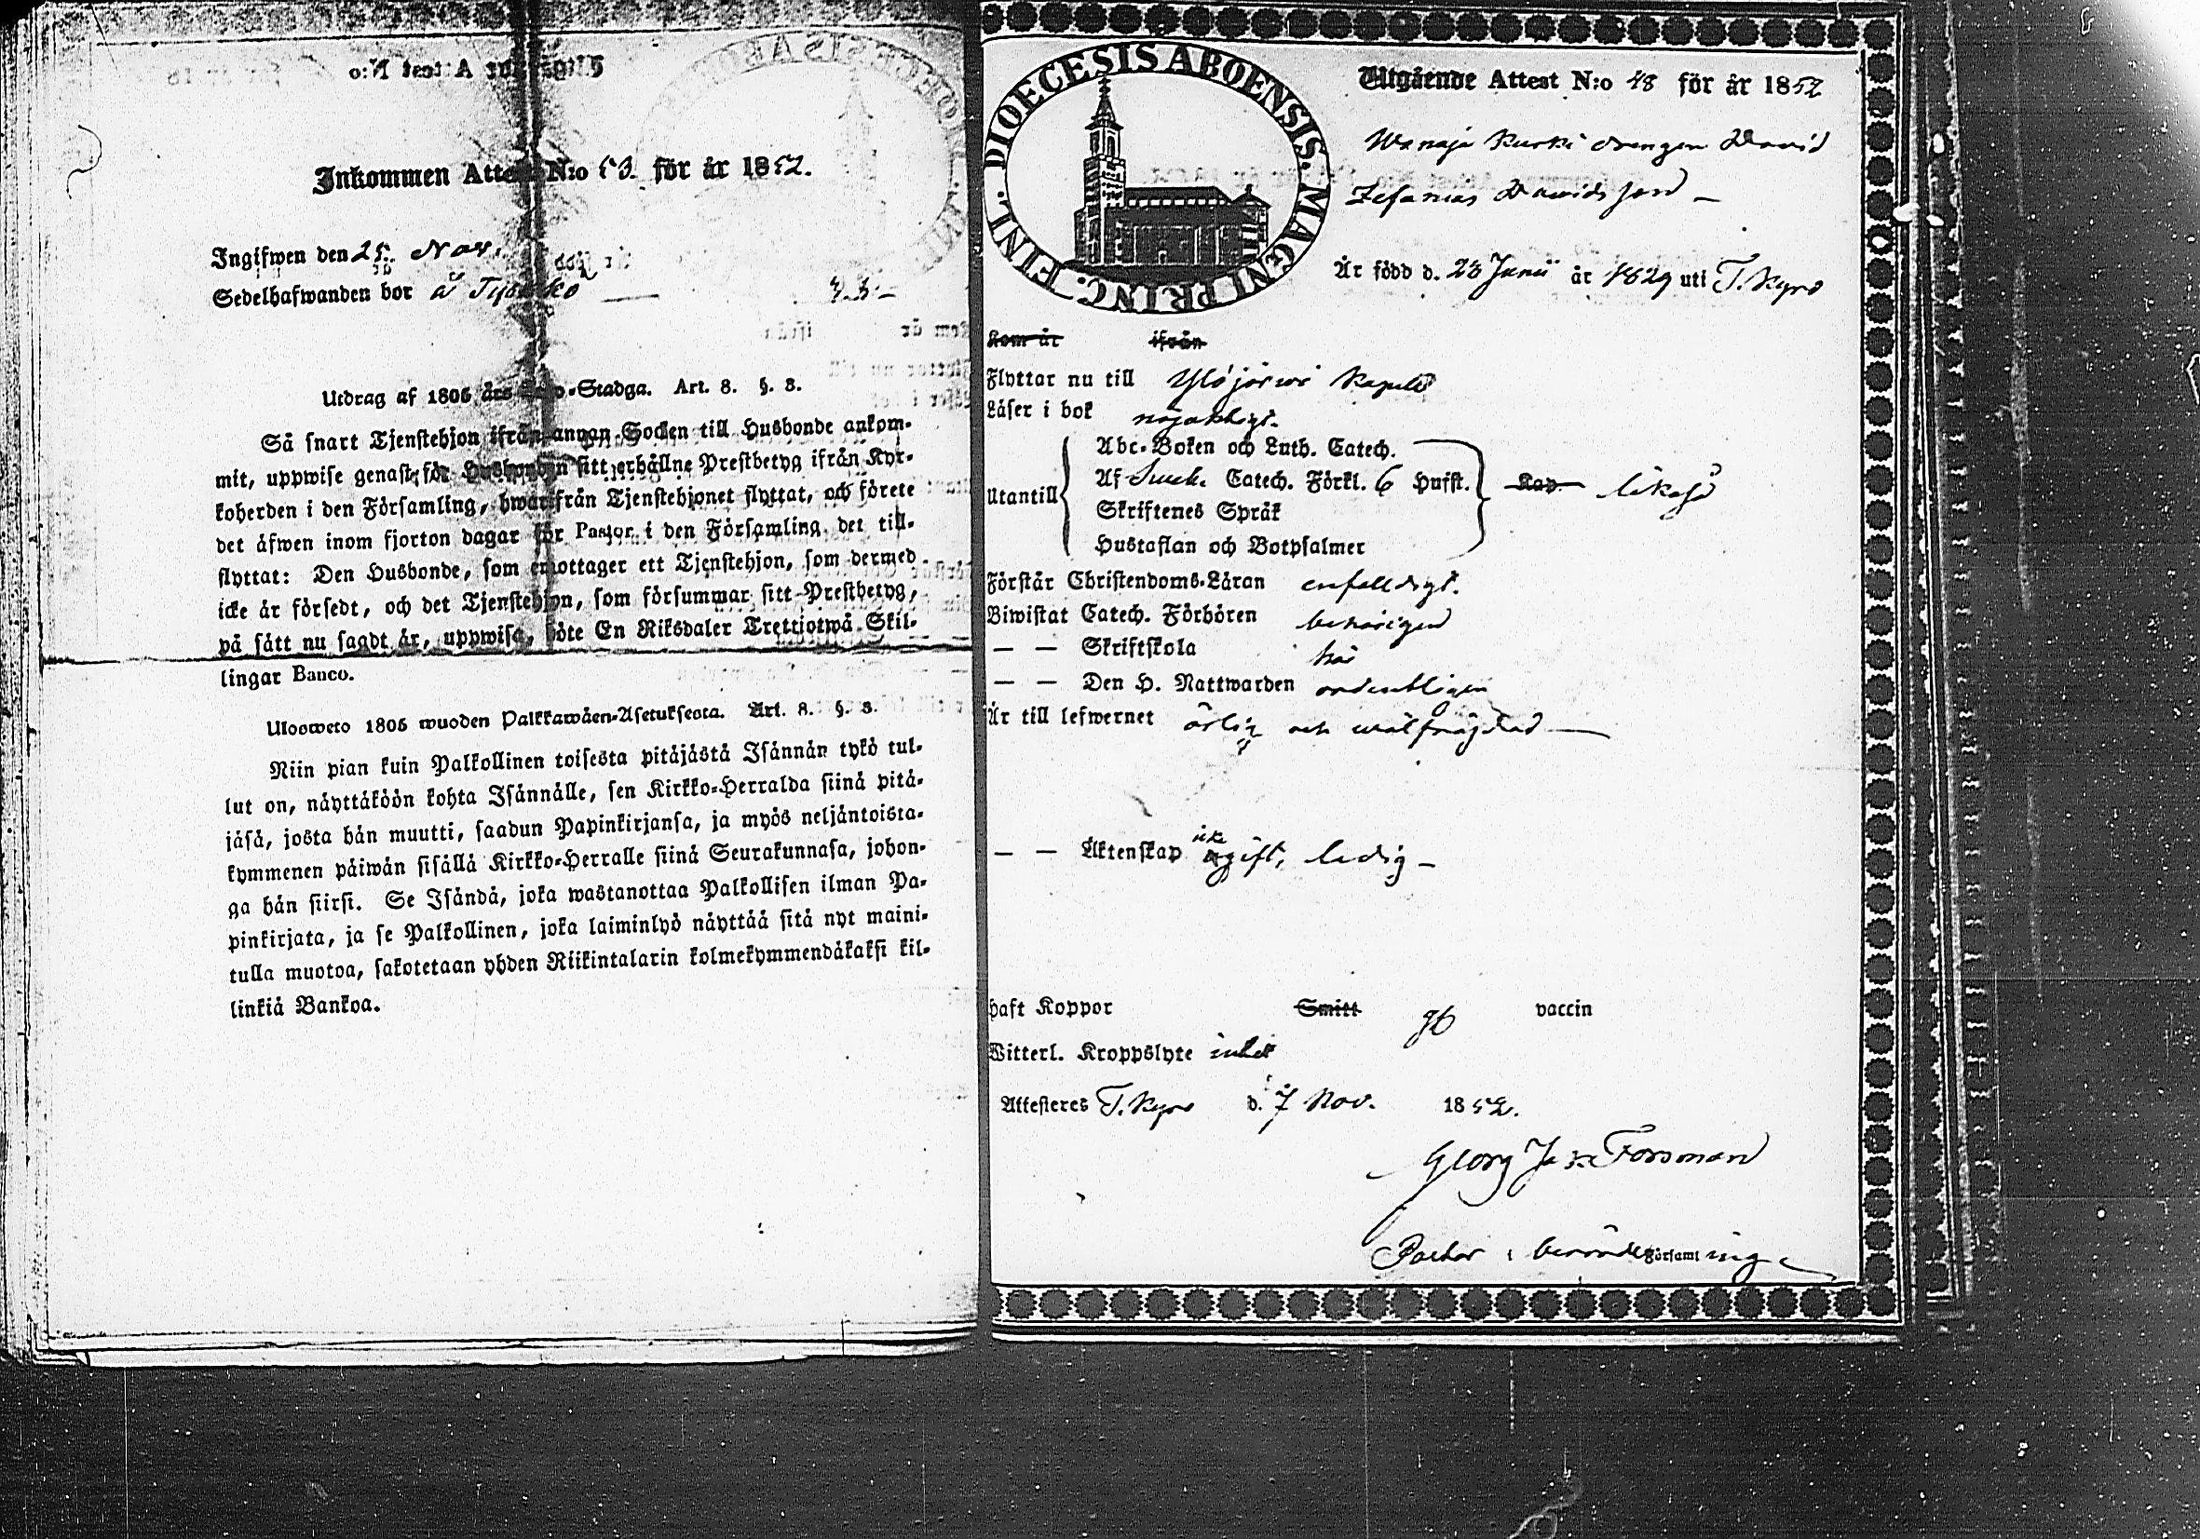 Inkommen Attest N:o 53. för år 1852.
Ingifwen den 25. Nov.
Sedelhafwanden bor å
Utdrag af 1805 års Lego-Stadga. Art. 8. §. 3.
Så snart Tjenstehjon ifrån annan Socken till Husbonde ankom-
mit, uppwise genast för Husbonden sitt erhållne Prestbetyg ifrån Kyr-
koherden i den Församling, hwarifrån Tjenstehjonet flyttat, och förete
det äfwen inom fjorton dagar för Pastor i den Församling det till-
flyttat: Den Husbonde, som emottager ett Tjenstehjon, som dermed
icke är försedt, och det Tjenstehjon, som försummar sitt Prestbetyg,
på sätt nu sagdt är, uppwisa, böte En Riksdaler Trettiotwå Skil-
lingar Banco.
Ulosweto 1805 wuoden Palkkawäen-Asetuksesta. Art. 8. §. 3.
Niin pian kuin Palkollinen toisesta pitäjästä Isännän tykö tul-
lut on, näyttäköön kohta Isännälle, sen Kirkko-Herralda siinä pitä-
jäsä, josta hän muutti, saadun Papinkirjansa, ja myös neljäntoista-
kymmenen päiwän sisällä Kirkko-Herralle siinä Seurakunnasa, johon-
ga hän siirsi. Se Isändä, joka wastanottaa Palkollisen ilman Pa-
pinkirjata, ja se Palkollinen, joka laiminlyö näyttää sitä nyt maini-
tulla muotoa, sakotetaan yhden Riikintalarin kolmekymmendäkaksi kil-
linkiä Bankoa.
DIOECESIS ABOENSIS. MAGNI PRINC. FINL.
Utgående Attest N:o 48 för år 1852
Wanaja Kurki drengen David
Zefanias Davidsson
Är född d. 23 Junii år 1829 uti T. Kyro
Kom år ifrån
Flyttar nu till Ylöjärwi Kapell
Läser i bok nöjaktigt.
Utantill
Abc-Boken och Luth. Catech.
Af Catech. Förkl. 6 Hufst. Kap. likaså
Skriftenes Språk
Hustaflan och Botpsalmer
Förstår Christendoms-Läran enfaldigt.
Biwistat Catech. Förhören behörigen
— — Skriftskola här
— — Den H. Nattwarden ordentligen
Är till lefwernet ärlig och wälfrägdad
— — Äktenskap icke gift, ledig
haft Koppor Smitt vaccin
Witterl. Kroppslyte intet
Attesteres T. Kyro d. 7 Nov. 1852.
Georg Jac. Forsman
Pastor i berörde Församling